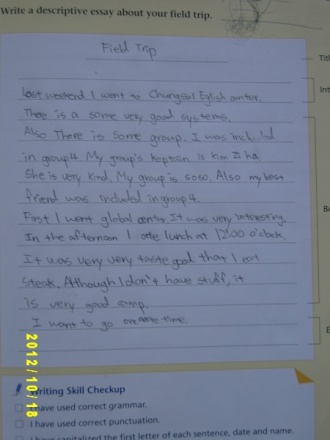 Write a descriptive essay about your field trip.
Field Trip
Last weekend I went to Chungsol Eglish center.
There is a some very good systems.
Also There is some group. I was included
in group4. My group's kaptain is Kim
She is very kind. My group is soso. Also my best
friend was included in group 4.
First I went global center. It was very interesting.
In the afternoon I ate lunch at 12:00 o'clock.
It was very very taste good that I eat
steak. Although I don't have stuff, it
is very good camp.
I want to go one more time.
Writing Skill Checkup
I have used correct grammar.
I have used correct punctuation.
I have capitalized the first letter of each sentence, date and name.
2012/10/18